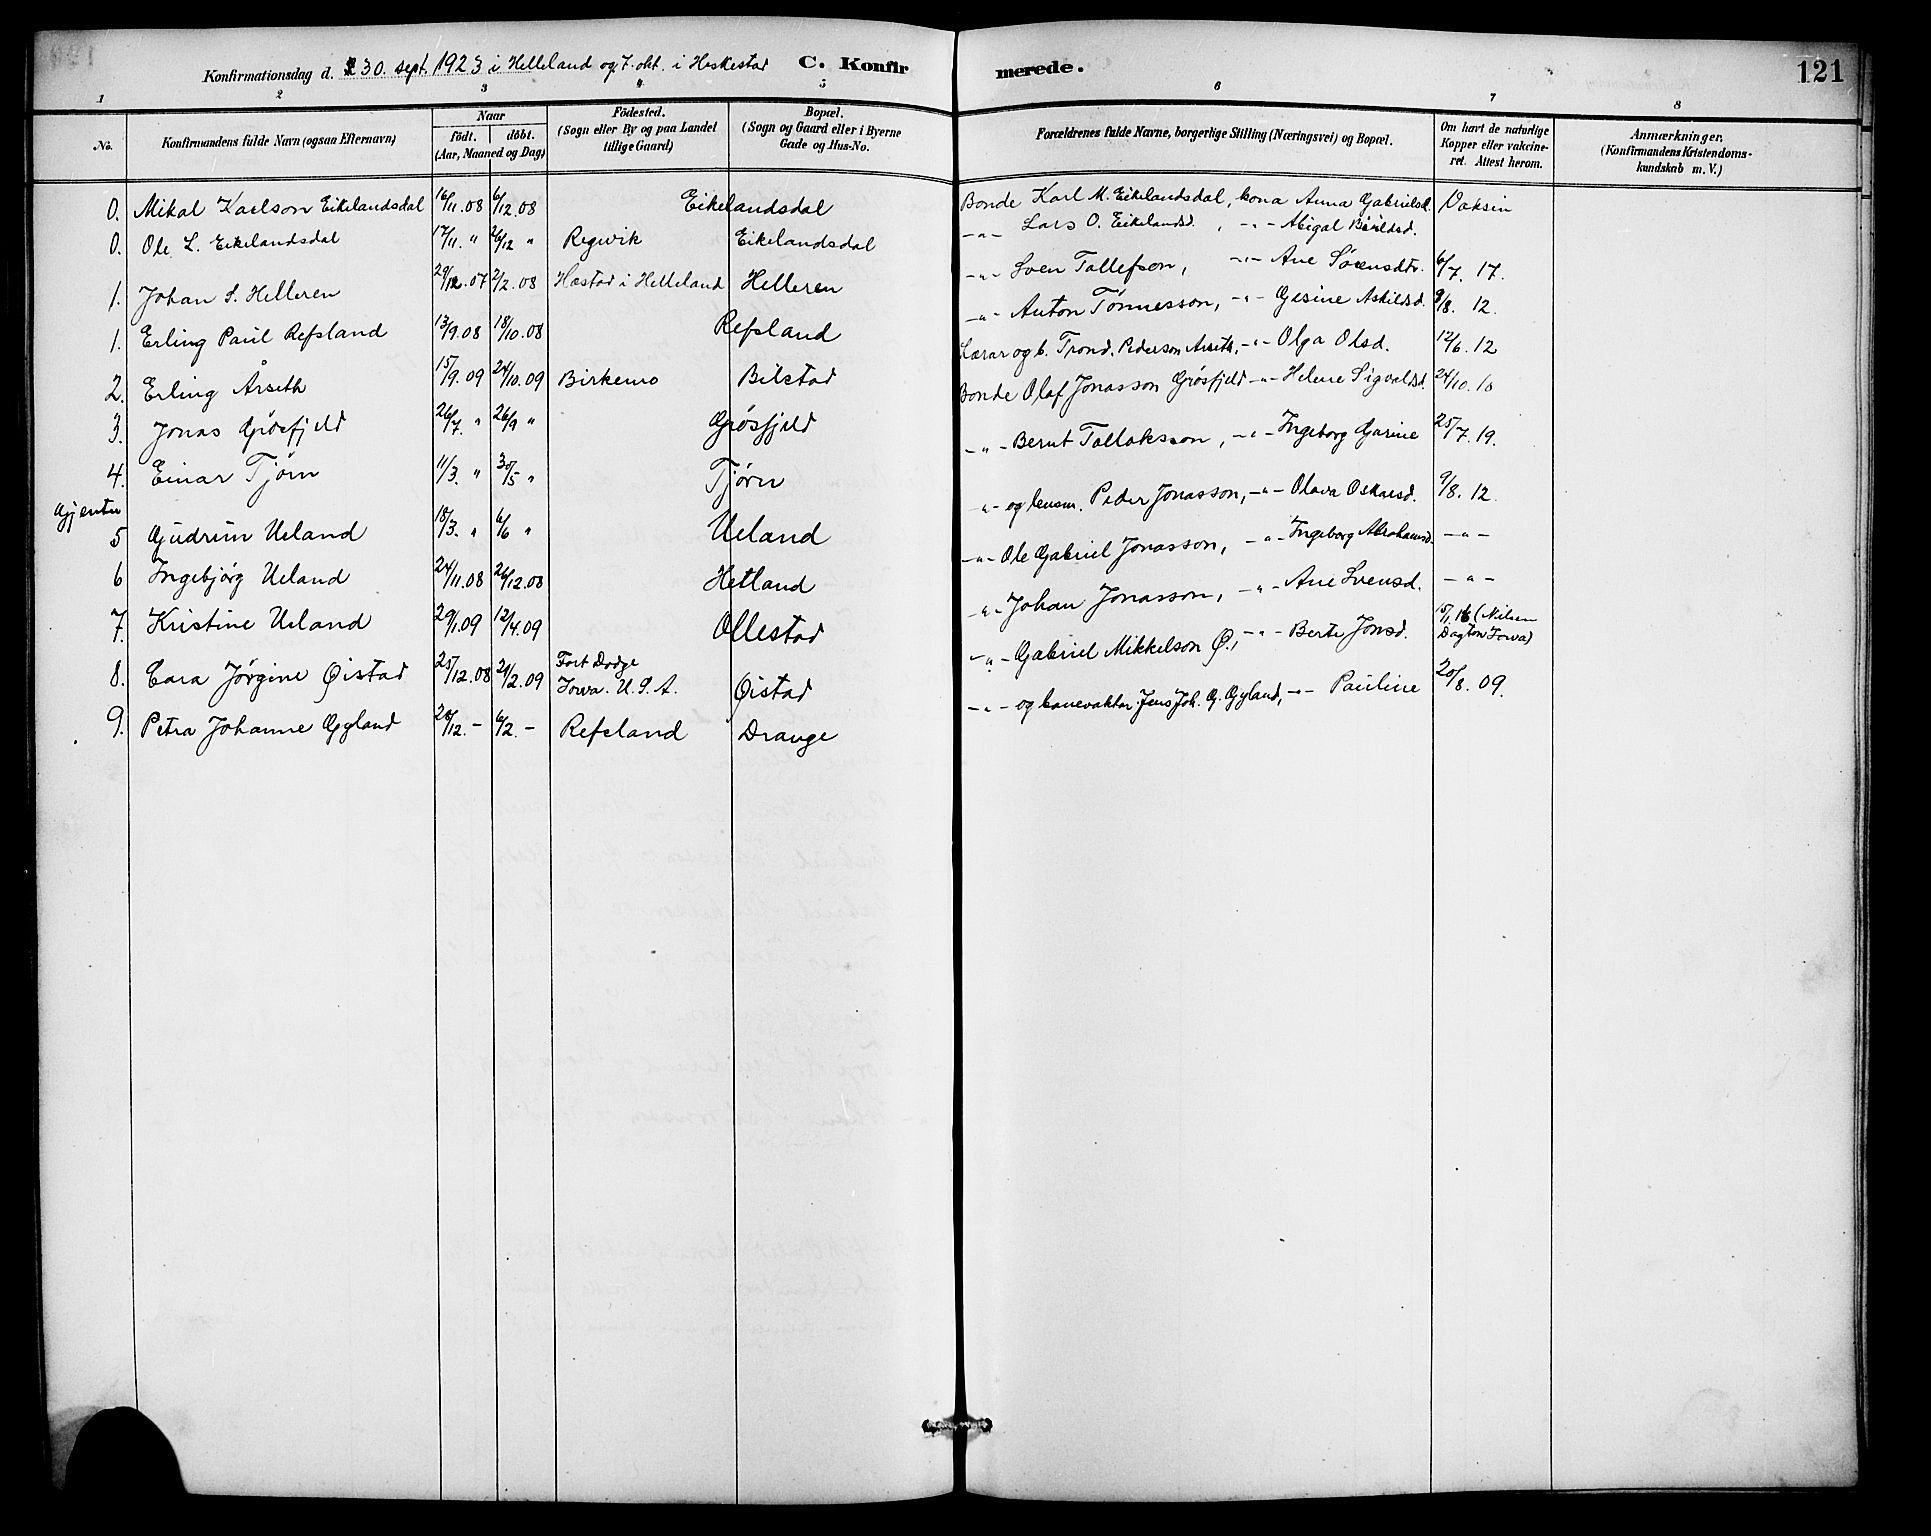 Konfirmationsdag d. 30. sept. 1923 i Helleland og 7. okt. i Heskestad C. Konfirmerede. 121
1 2 3 4 5 6 7 8
No. Konfirmandens fulde Navn (ogsaa Efternavn) Naar födt. döbt. (Aar, Maaned og Dag) Födested. (Sogn eller By og paa Landet tillige Gaard) Bopæl. (Sogn og Gaard eller i Byerne Gade og Hus-No. Forældrenes fulde Navne, borgerlige Stilling (Næringsvei) og Bopæl. Om havt de naturlige Kopper eller vakcineret. Attest herom. Anmærkninger. (Konfirmandens Kristendomskundskab m. V.)
0. Mikal Karlson Eikelandsdal 16/11.08 6/12.08 Eikelandsdal Bonde Karl M. Eikelandsdal, kona Anna Gabrielsd. Vaksin
0. Ole L. Eikelandsdal 17/11. " 26/12 " Regevik Eikelandsdal -"- Lars O. Eikelandsd. , -"- Abigal
1. Johan S. Helleren 29/12.07 2/2.08 Hæstad i Helleland Helleren -"- Sven Tollefson, -"- Ane Sörensdtr. 6/7. 17.
1. Erling Paul Refsland 13/9.08 18/10.08 Refsland -"- Anton Tønnesson, -"- Gesine Askildsd. 9/8. 12.
2. Erling Årseth 15/9.09 24/10.09 Birkemo Bilstad Lærar og b. Trond. Pederson Årseth, -"- Olga Olsd. 12/6. 12
3. Jonas Gjøsfjeld 26/7. " 26/9 " Gjøsfjeld Bonde Olaf Jonasson Gjøsfjeld -"- Helene Sigvaldsd. 24/10. 10
4. Einar Tjørn 11/3. " 30/5 " Tjørn -"- Bernt Tollaksson, -"- Ingeborg Garine 25/7. 19.
Gjentur
5 Gudrun Ueland 18/3. " 6/6 " Ueland -"- og lensm. Peder Jonasson, -"- Olava Oskarsd. 9/8. 12.
6 Ingebjörg Ueland 24/11.08 26/12.08 Hetland -"- Ole Gabriel Jonasson, -"- Ingeborg Abrahamsd. -"-
7. Kristine Ueland 29/1.09 12/4.09 Ollestad -"- Johan Jonasson, -"- Ane Svensd. -"-
8. Cara Jørgine Øistad 25/12.08 21/2.09 Fort Dodge Iowa. U.S.A. Øistad -"- Gabriel Mikkelson Ø., -"- Berte Jonsd. 15/1.16 (Nilsen Dayton Iowa)
9. Petra Johanne Gyland 28/12. - 6/2. - Refsland Drange -"- og banevaktar Jens Joh. G. Gyland, -"- Pauline 20/8. 09.